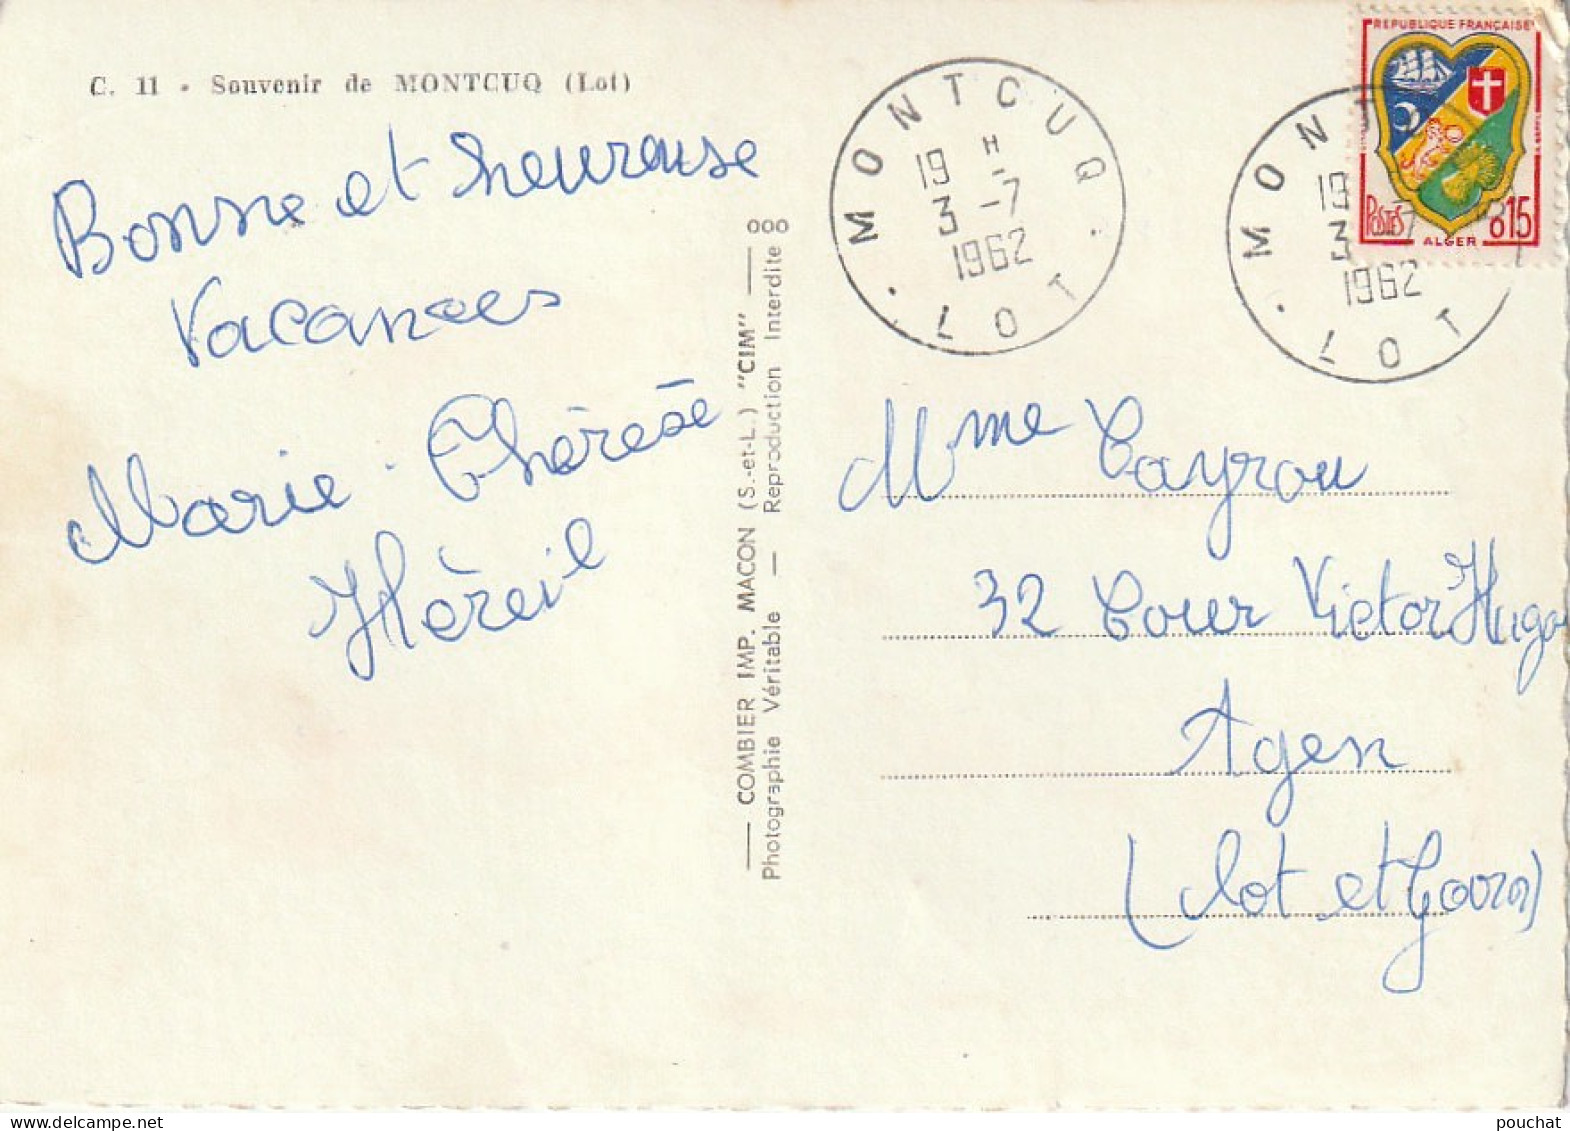 C. 11 - Souvenir de MONTCUQ (Lot)
Bonne et heureuse
Vacances
Marie-Thérèse
Héreil
— COMBIER IMP. MACON (S.-et-L.) "CIM" — 000
Photographie Véritable — Reproduction Interdite
MONTCUQ
19 H
3 -7
1962
LOT
MONT
19
3 -7
1962
LOT
REPUBLIQUE FRANÇAISE
POSTES
ALGER
0,15
Mme Cayrou
32 Cour Victor Hugo
Agen
(Lot et Garon)
pouchat